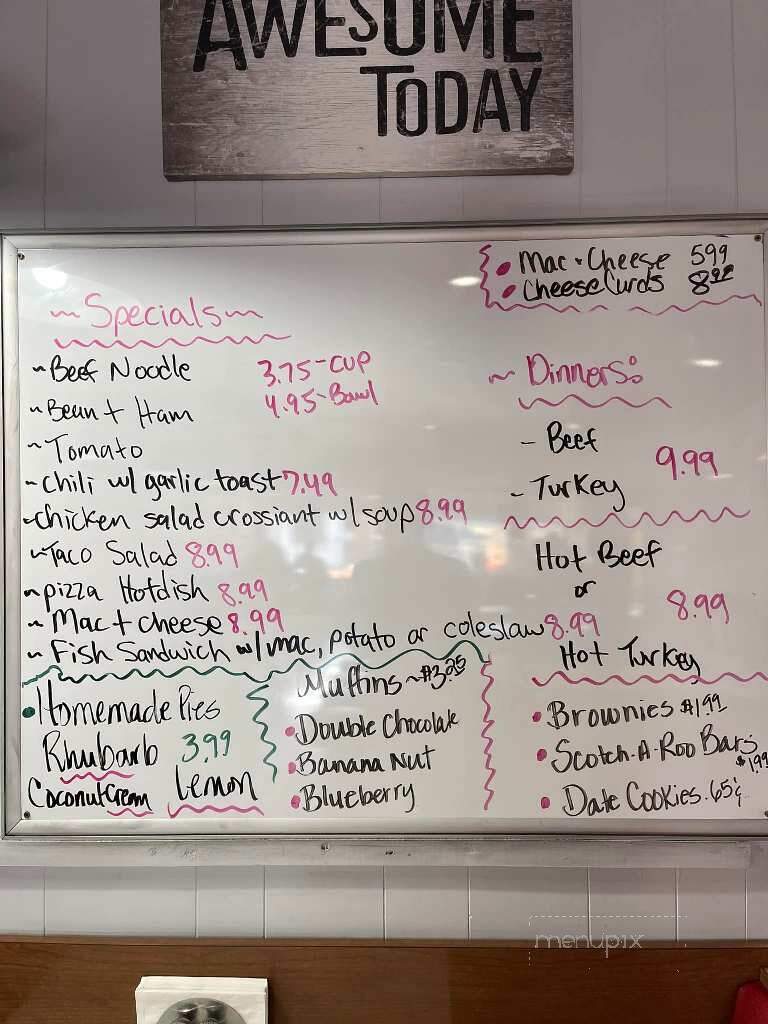 AWESOME
TODAY
• Mac + Cheese 599
• Cheese Curds 8.99
~ Specials ~
~ Beef Noodle 3.75-cup
~ Bean + Ham 4.95-Bowl
~ Tomato
~ chili w/ garlic toast 7.49
~ chicken salad crossiant w/ soup 8.99
~ Taco Salad 8.99
~ pizza Hotdish 8.99
~ Mac + cheese 8.99
~ Fish Sandwich w/mac, potato or coleslaw 8.99
~ Dinners:
- Beef
9.99
- Turkey
Hot Beef
or
8.99
Hot Turkey
• Homemade Pies
Rhubarb 3.99
Coconut Cream Lemon
Muffins ~ $3.25
• Double Chocolate
• Banana Nut
• Blueberry
• Brownies $1.99
• Scotch-A-Roo Bars
$1.99
• Date Cookies. 65¢
menupix